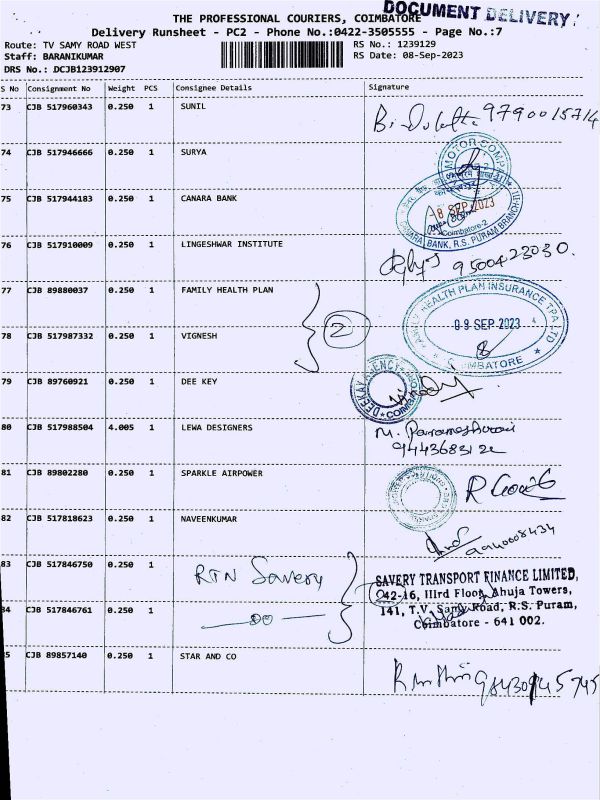 DOCUMENT DELIVERY:
THE PROFESSIONAL COURIERS, COIMBATORE
Delivery Runsheet - PC2 - Phone No.:0422-3505555 - Page No.:7
Route: TV SAMY ROAD WEST
RS No.: 1239129
Staff: BARANIKUMAR
RS Date: 08-Sep-2023
DRS No.: DCJB123912907
S No Consignment No Weight PCS Consignee Details Signature
73 CJB 517960343 0.250 1 SUNIL
9790015714
74 CJB 517946666 0.250 1 SURYA
MOTOR COMP
75 CJB 517944183 0.250 1 CANARA BANK
8 SEP 2023
Coimbatore-2
CANARA BANK, R.S. PURAM BRANCH
76 CJB 517910009 0.250 1 LINGESHWAR INSTITUTE
9500423030.
77 CJB 89880037 0.250 1 FAMILY HEALTH PLAN
FAMILY HEALTH PLAN INSURANCE TPA LTD
09 SEP 2023
COIMBATORE
2
78 CJB 517987332 0.250 1 VIGNESH
79 CJB 89760921 0.250 1 DEE KEY
DEEKAY AGENCY
80 CJB 517988504 4.005 1 LEWA DESIGNERS
M. Parameshwari
9443683122
81 CJB 89802280 0.250 1 SPARKLE AIRPOWER
82 CJB 517818623 0.250 1 NAVEENKUMAR
9940008434
83 CJB 517846750 0.250 1
RTN Savery
SAVERY TRANSPORT FINANCE LIMITED,
242-16, IIIrd Floor, Ahuja Towers,
84 CJB 517846761 0.250 1
— DO —
141, T.V. Samy Road, R.S. Puram,
Coimbatore - 641 002.
5 CJB 89857140 0.250 1 STAR AND CO